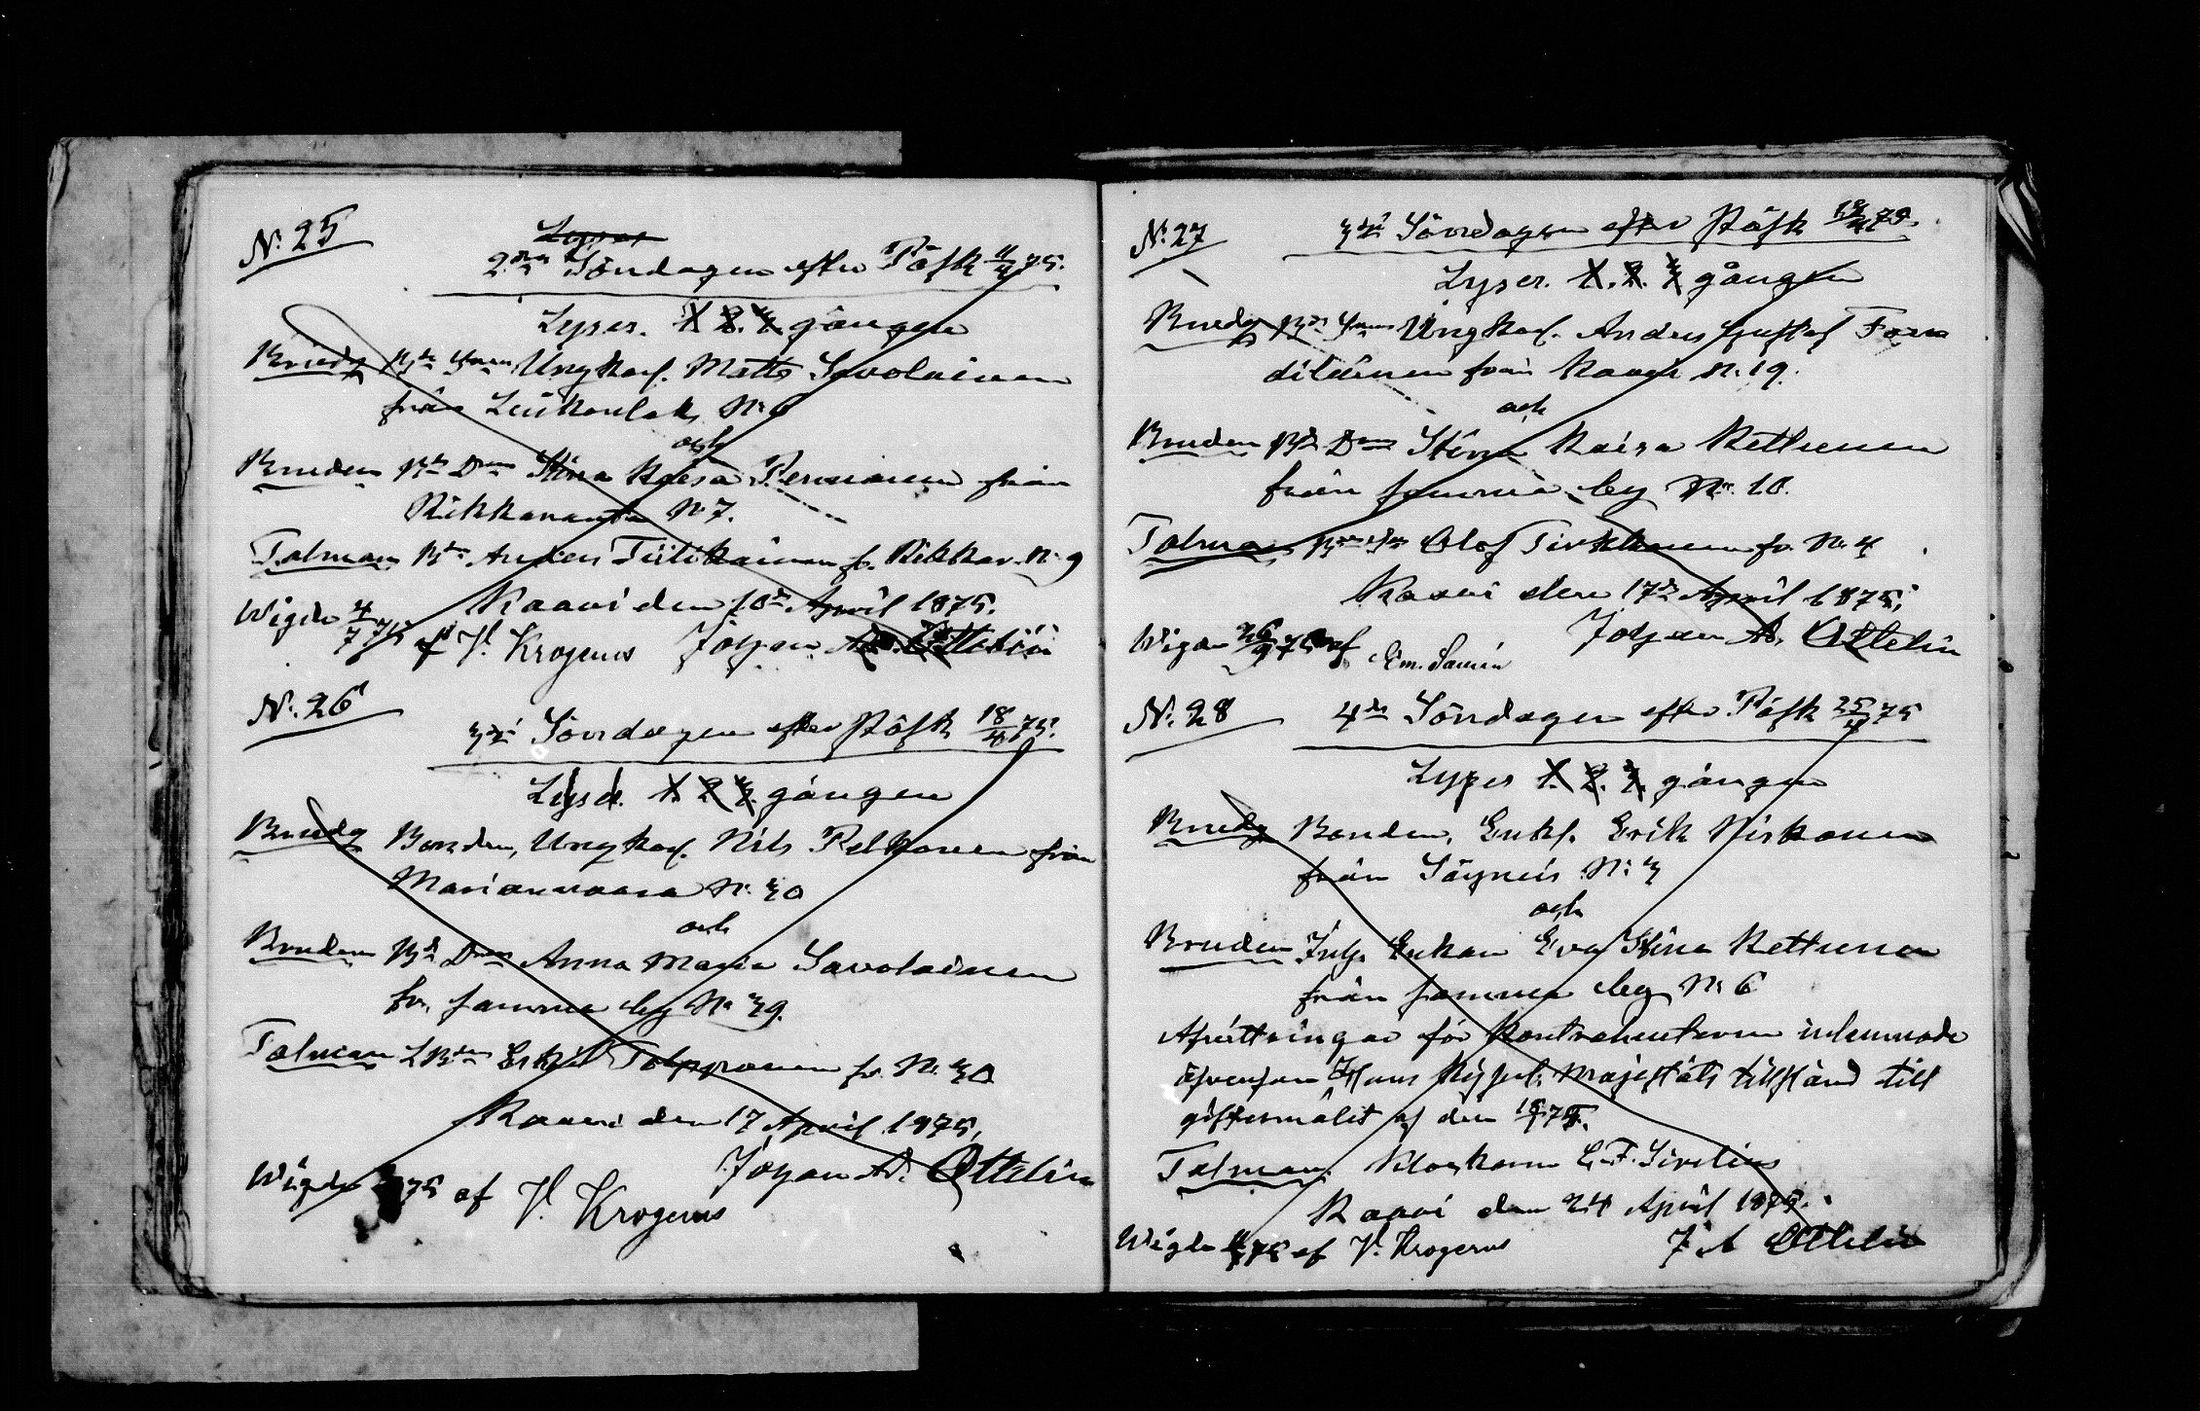 N: 25
Lyser
2dra Söndagen efter Påsk 11/4 75.
Lyses. 1. 2. 3. gången
Brudg Bde Son Ungkarl. Matts Savolainen
från Luikonlaks N: 6
och
Bruden Bde Dtr Stina Kaisa Pennanen från
Rikkaranta N 7.
Talman Bdn Anders Tiilikainen fr. Rikkar. N: 9
Kaavi den 10de April 1875.
Wigde 4/7 75 af V. Krogerus Johan Ad. Ottelin
N: 26
3dje Söndagen efter Påsk 18/4 75.
Lyses. 1. 2. 3. gången
Brudg Bonden, Ungkarl. Nils Pelkonen från
Marianvaara N: 30
och
Bruden Bde Dtr Anna Maria Savolainen
fr. samma by N: 39.
Talman Erkki Tolppanen fr. N: 30
Kaavi den 17 April 1875,
Johan Ad. Ottelin
Wigde 75 af V. Krogerus
N: 27
3dje Söndagen efter Påsk 18/4 75.
Lyses. 1. 2. 3. gången
Brudg Bde Son Ungkarl. Anders Gustaf
från Kaavi N: 19.
och
Bruden Bde Dtr Stina Kaisa Kettunen
från samma by N: 10.
Talman Olof Tirkkonen fr. N: 4
Kaavi den 17de April 1875,
Johan Ad. Ottelin
Wigde 75 af Em. Samin
N: 28
4de Söndagen efter Påsk 25/4 75
Lyses 1. 2. 3. gången
Brudg Bonden, Enkl. Erik Niskanen
från Säyneis N: 3
och
Bruden Inh. Enkan Eva Stina Kettunen
från samma by N: 6
Afvittringar för Kontrahenterna inlemnade
äfvensom Hans Kejserl. Majestäts tillstånd till
giftermålet af den
Talman. Klockaren E. F. Sirelius
Kaavi den 24 April 1875.
Wigde 75 af V. Krogerus J. A Ottelin